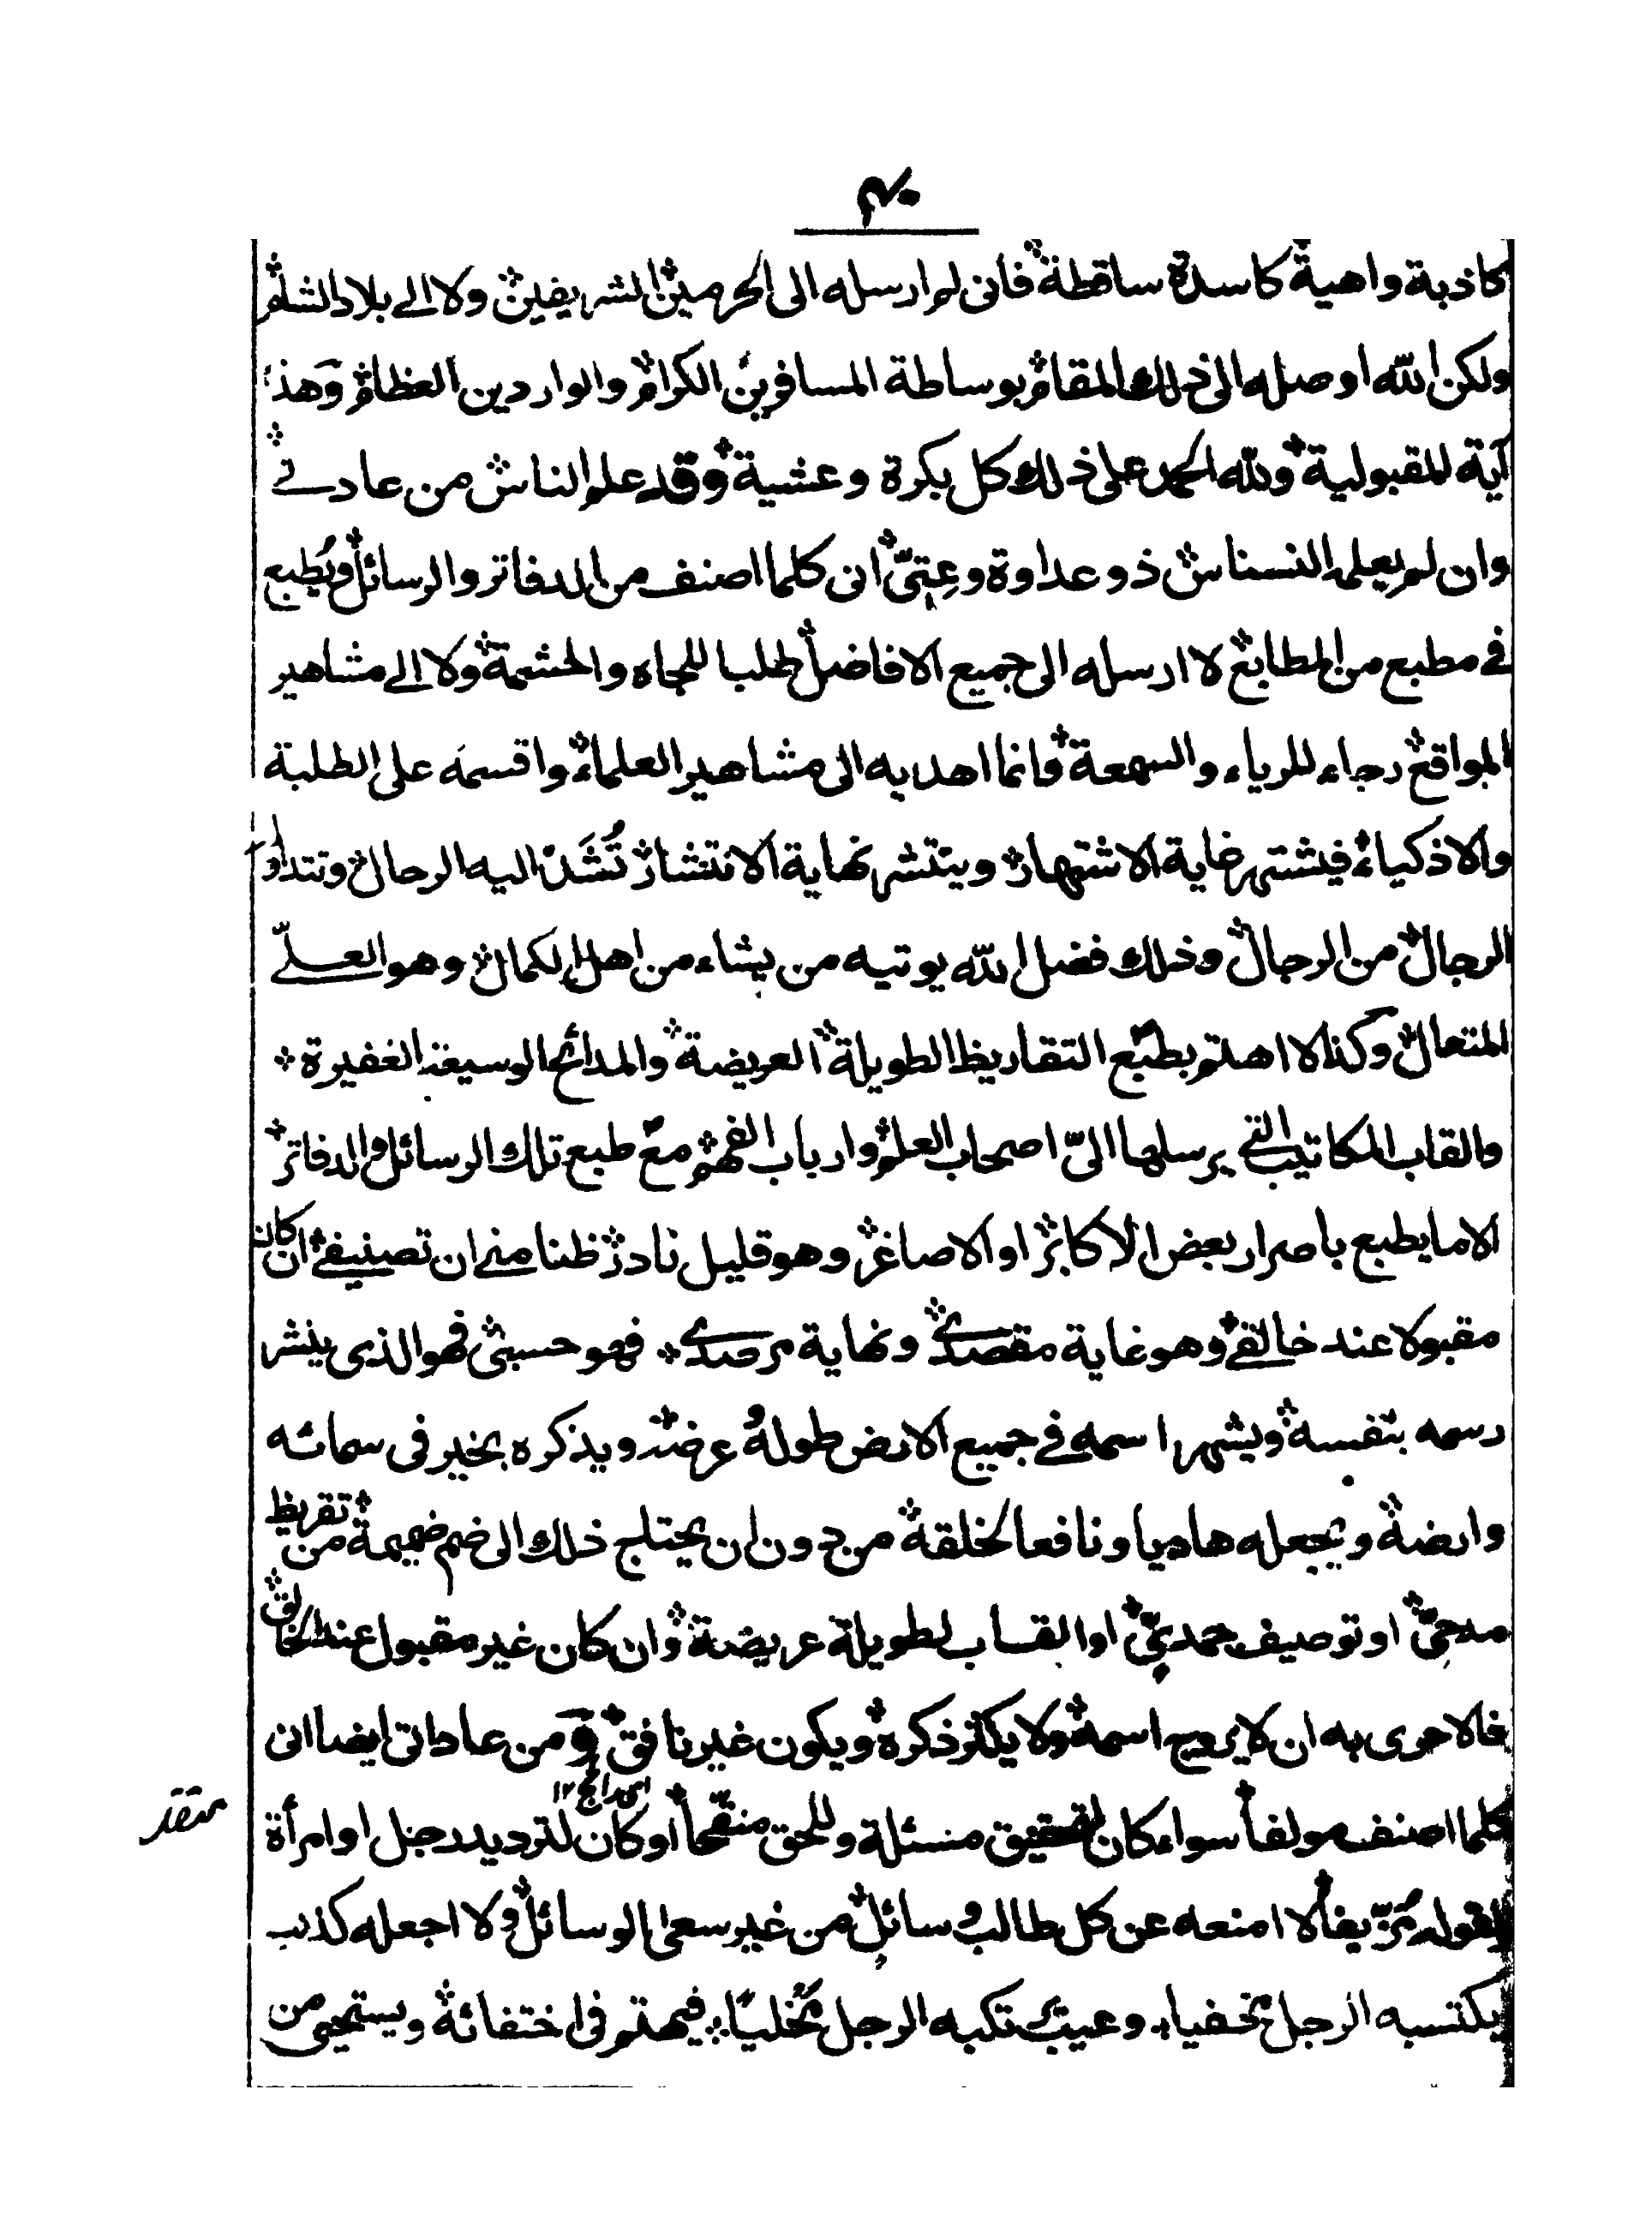 ۴۰
كاذبة واهية كاسدة ساقطة فانى لم ارسله الى الحرمين الشريفين ولا الى بلاد الشام
ولكن الله اوصله الى ذلك المقام بوساطة المسافرين الكرام والواردين العظام وهذا
آية المقبولية ولله الحمد على ذلك كل بكرة وعشية وقد علم الناس من عادتي
وان لم يعلمه النسناس ذو عداوة وعِتىّ انى كلما اصنف من الدفاتر والرسائل ويُطبع
في مطبع من المطابع لا ارسله الى جميع الافاضل طلبا للجاه والحشمة ولا الى مشاهير
المواقع رجاء للرياء والسمعة وانما اهديه الى مشاهير العلماء واقسمه على الطلبة
والاذكياء فيشتهر غاية الاشتهار وينتشر نهاية الانتشار تُشَدّ اليه الرحال وتتداوله
الرجال من الرجال وذلك فضل الله يوتيه من يشاء من اهل الكمال وهو العلىّ
المتعال وكذا لا اهتم بطبع التقاريظ الطويلة العريضة والمدائح الوسيعة الغفيرة
والقاب المكاتيب التي يرسلها الىّ اصحاب العلم وارباب الفهم مع طبع تلك الرسائل والدفاتر
الا ما يطبع باصرار بعض الاكابر او الاصاغر وهو قليل نادر ظنا مني ان تصنيفي ان كان
مقبولا عند خالقي وهو غاية مقصدي ونهاية مرصدي فهو حسبى فهو الذى ينشر
رسمه بنفسه ويشهر اسمه في جميع الارض طوله وعرضه ويذكره بخير فى سمائه
وارضه ويجعله هاديا ونافعا لخلقه من دون ان يحتاج ذلك الى ضم ضميمة من تقريظ
مدحىّ او توصيف حمدىّ او القاب لطويلة عريضة وان كان غير مقبول عند الخالق
فالاحرى به ان لا يروج اسمه ولا يكثر ذكره ويكون غير نافق ومن عاداتى ايضا انى
اى رائج ۱۲
كلما اصنف مولفا سواء كان لتحقيق مسئلة وللحق منقحا او كان لترديد رجل او امرأة
لقوله مُزيّفا لا امنعه عن كل طالب وسائل من غير سعى الوسائل ولا اجعله كذنب
يكتسبه الرجل مخفيا وعيب تكبه الرجل مخليا فيهتم فى اختفائه ويستحيى من